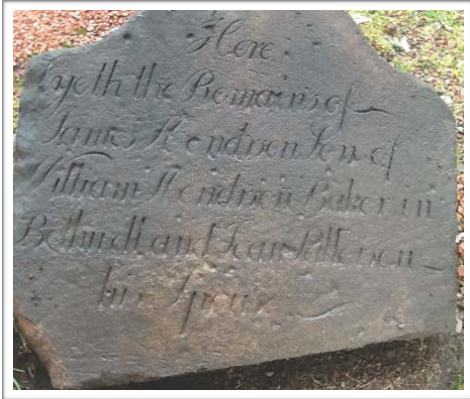 Here
lyeth the Remains of
James Hendrson Son of
William Hendrson Baker in
and Jean
his Spouse